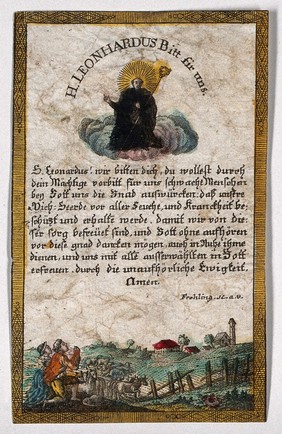 H. LEONHARDUS Bitt für uns.
S. Leonardus! wir bitten dich, du wollest durch
dein Mächtige vorbitt für uns schwache Menschen
bey Gott uns die Gnad auswürcken, daß unsre
Vieh-Heerde vor aller Seuche, und Kranckheit be-
schüzt und erhalte werde, damit wir von die-
ser sorg befreüet sind, und Gott ohne aufhören
vor diese gnad dancken mögen, auch in Ruhe ihme
dienen, und uns mit alle auserwählten in Gott
erfreuen, durch die unaufhörliche Ewigkeit.
Amen.
Frehling. sc. a. v.